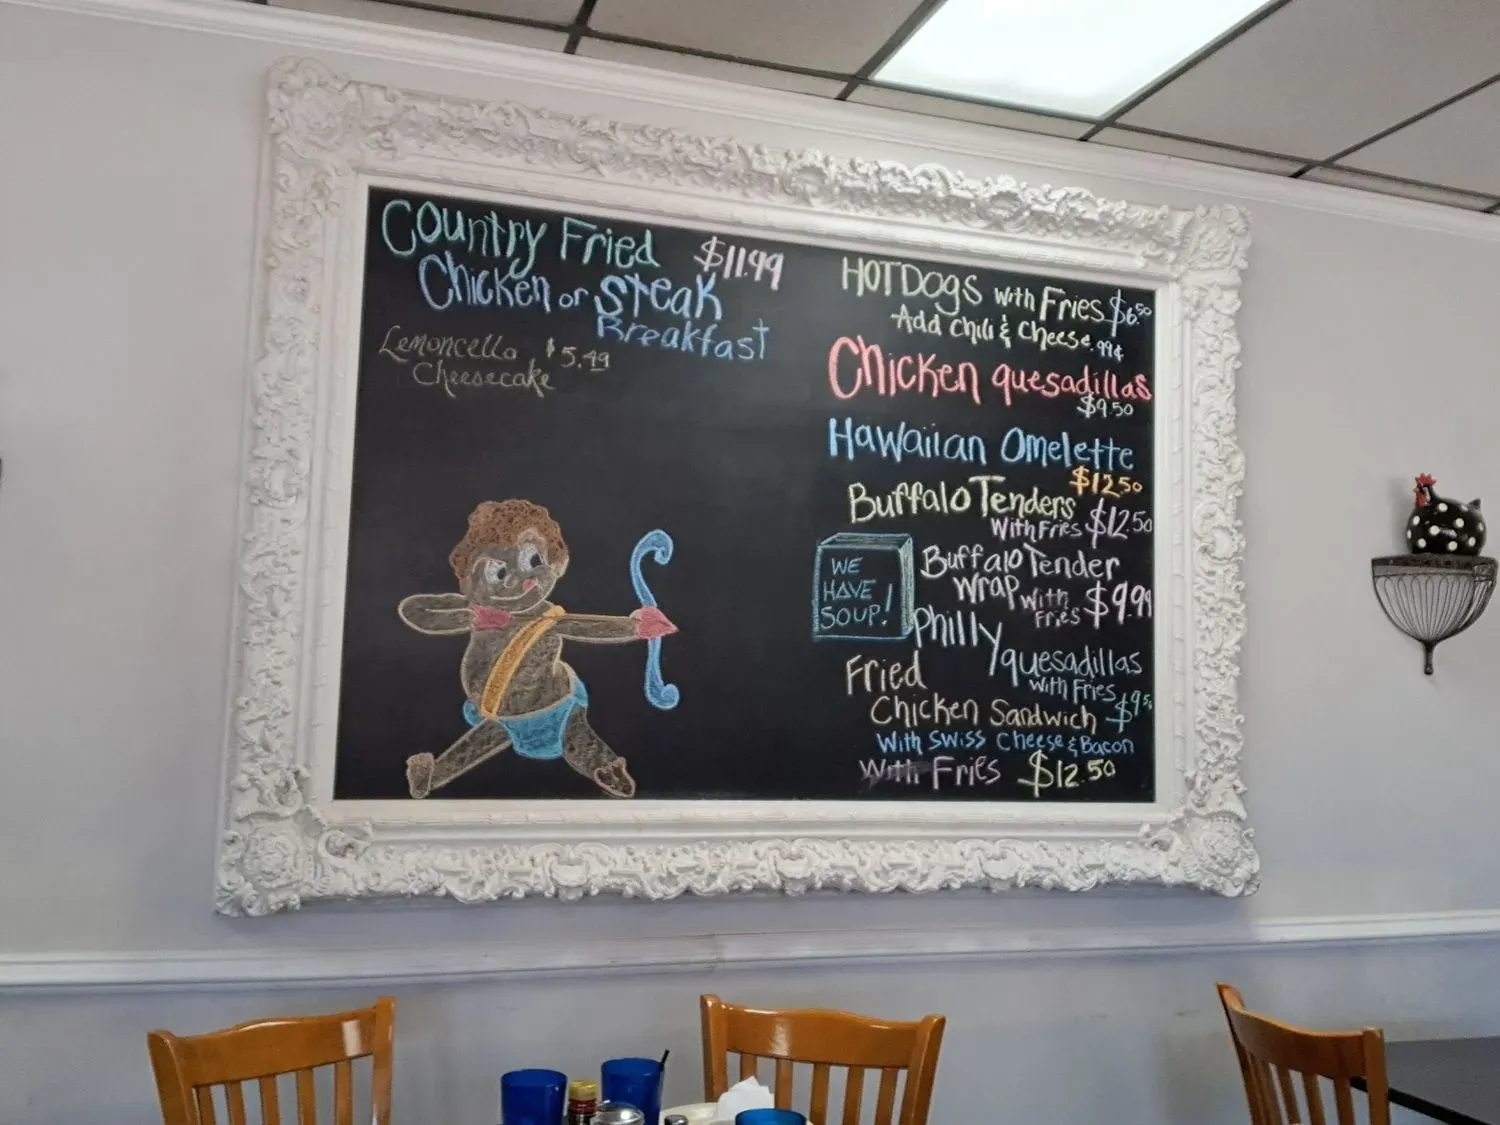 Country Fried $11.99
Chicken or Steak
Breakfast
Lemoncello $5.49
Cheesecake
HOTDOGS with Fries $6.50
Add Chili & Cheese .99¢
Chicken quesadillas
$9.50
Hawaiian Omelette
$12.50
Buffalo Tenders
With Fries $12.50
WE
HAVE
SOUP!
Buffalo Tender
Wrap With
Fries $9.99
Philly
quesadillas
With Fries $9.50
Fried
Chicken Sandwich
With Swiss Cheese & Bacon
With Fries $12.50